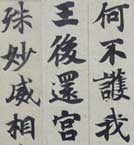 何不護我
王後還宮
殊妙威相